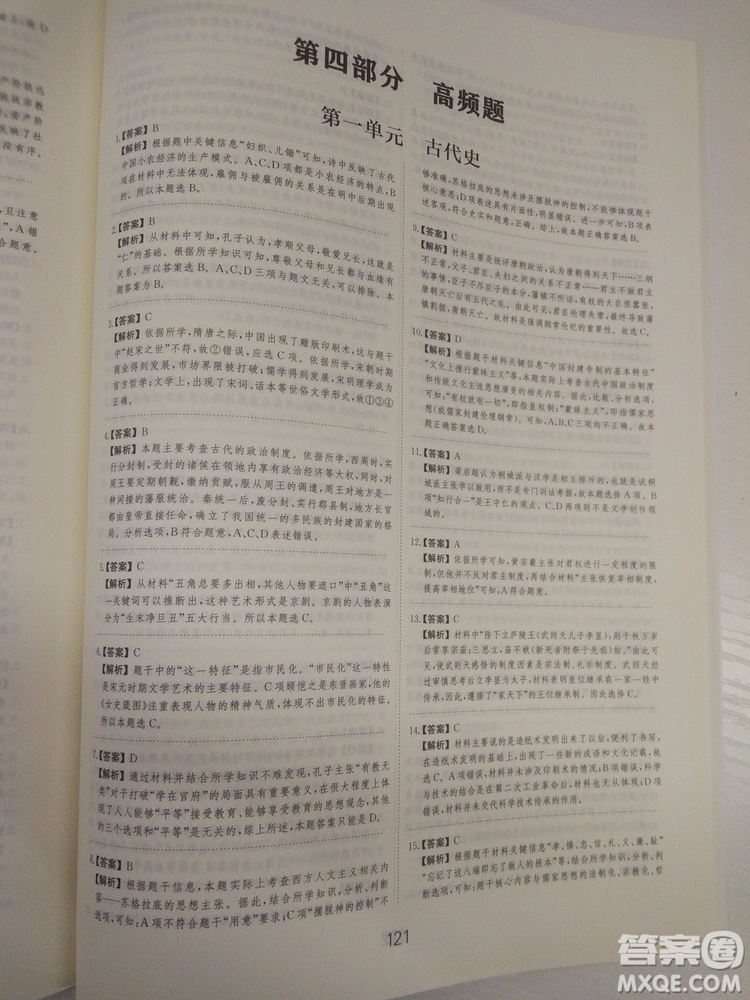 第四部分 高频题
第一单元 古代史
1.【答案】B
【解析】根据题中关键信息“妇织、儿锄”可知,诗中反映了古代
中国小农经济的生产模式。A、C、D项都是小农经济的特点,B
项在材料中无法体现,雇佣与被雇佣的关系是到明中后期出现
的。所以本题选B。
2.【答案】B
【解析】从材料中可知,孔子认为,孝顺父母,敬爱兄长,这就是
“仁”的基础。根据所学知识可知,尊敬父母和兄长是对宗族血缘
关系的维护。所以答案选B。A、C、D三项与题意无关,可以排除。本
题答案为B。
3.【答案】C
【解析】依据所学,隋唐之际,中国出现了雕版印刷术,这与题
中“赵宋之世”不符,故②错误,应选C项。依据所学,宋代时期
商业得到发展,市坊界限被打破;儒学得到发展,宋明理学成为
官方哲学;文学上,出现了宋词、话本等世俗文学形式,故①③④
正确。
4.【答案】B
【解析】本题主要考查古代的政治制度。依据所学,西周时,实
行分封制,受封的诸侯在领地内享有政治经济等大权,但对
周王要定期朝觐,缴纳贡赋,战时要服从周王的调遣,这时是
一种间接的藩服统治。秦统一后,废分封、实行郡县制,地方
由皇帝直接任命,确立了我国统一的多民族的封建国家的格
局。分析选项,B符合题意,A、C、D表述错误。
5.【答案】C
【解析】从材料“丑角总要多出相,其他人物要逃口”中“丑角”这
一关键词可以推断出,这种艺术形式是京剧。京剧的人物表演
分为“生末净旦丑”五大行当。所以本题选C。
6.【答案】C
【解析】题干中的“这一特征”是指市民化。“市民化”这一特性
是宋元时期文学艺术的主要特征。C项顾恺之是东晋画家,他的
《女史箴图》注重表现人物的精神气质,体现的是文人士大夫的
所以本题选C。
7.【答案】D
【解析】通过材料并结合所学知识不难发现,孔子主张“有教无
类”对于打破“学在官府”的局面具有重要意义,在很大程度上体
现了人人能够“平等”接受教育、能够享受教育的思想,而与其他
的三个选项和“平等”是无关的,综上所述,本题答案只能是D。
8.【答案】B
【解析】根据题干信息,本题实际上考查西方人文主义相关内
容——苏格拉底的思想主张。根据所学知识,比较、分析、判断
可知:A项不符合题干“用意”要求;C项“摆脱神的控制”不
够准确,苏格拉底的思想未涉及摆脱神的控制,不能够体现题干
核心意思;D项表述具有片面性,明显错误。进一步分析可知:B项
表述客观,符合史实与题意,故本题正确答案选B。
9.【答案】C
【解析】材料主要是批评唐朝政治,认为唐朝得到天下……三纲
不正常,父子、君臣、夫妇之间的关系不正常,君主不像君主
的样子,臣子不尽臣子的本分,藩镇不听号召,权大的官员很嚣张,
唐朝灭亡后有五代之乱。由此可见,君臣伦理失常,最终导致藩
镇割据,唐朝灭亡。故材料是强调纲常伦纪的重要性。因此选C。
10.【答案】D
【解析】根据题干材料关键信息“中国封建专制的基本特征”
“文化上推行蒙昧主义”等,本题实际上考查古代中国政治制度
和传统文化主流思想演变的相关内容。比较、分析选项,
可知:“有权就有一切”,即指君主专制;“蒙昧主义”,即指儒家
思想(或儒家封建伦理纲常)。所以,本题正确答案选D。
11.【答案】A
【解析】梁启超认为桐城派与汉学是相互排斥的,也就是说,桐
城派主张学以致用,而不是专门训诂考据,故选择A项。B项、
C项“心学”是王守仁的理论;D项则不是文学创作
领域的。
12.【答案】A
【解析】依据所学可知,黄宗羲主张对君权进行一定程度的限
制,反对君主制度,再结合材料“主张恢复宰相制度,提高相
权”可知,A符合题意。
13.【答案】C
【解析】材料中“陛下立庐陵王(武则天儿子李显),则千秋万岁
后常享宗庙;三思立,庙不祔(新死者附祭于先祖)姑”。所以
影响武则天思想的制度因素是宗法制、礼乐制。因而,武则天
经过审慎思考后立李显为太子,把王位继承在一家一姓中
传承,体现了“家天下”的王位继承制,因此选C。
14.【答案】C
【解析】材料主要说的是造纸术发明出来了以后,便利了书写,
在造纸术发明以后,出现了一些新的成语和文化记载,故选C。科学
与技术的结合是在第二次工业革命后,与材料主旨不符;D项
错误,材料并未交代科学技术传承的作用。
15.【答案】C
【解析】根据题干材料关键信息“孝、悌、忠、信、礼、义、廉、耻”
“忘记了这八端即忘了做人的根本”等,结合所学知识,分析
选项,题干核心内容与儒家思想的法制化、宗教化、哲
121
答案圈
MXQE.COM